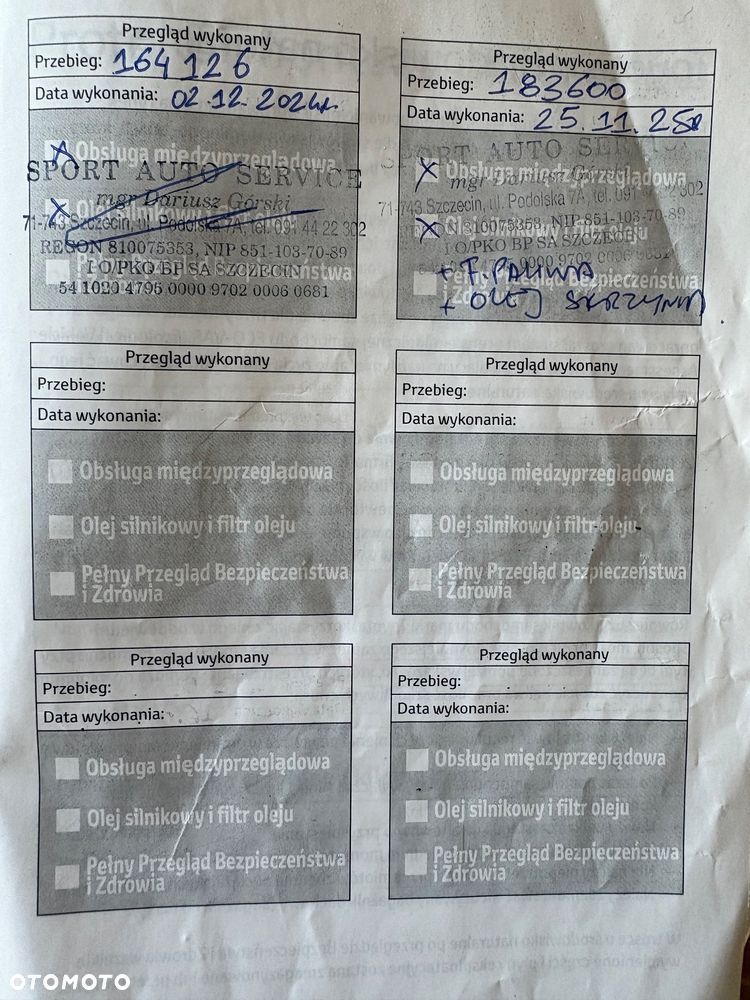 Przegląd wykonany
Przebieg: 164 126
Data wykonania: 02.12.2024r.
x Obsługa międzyprzeglądowa
SPORT AUTO SERVICE
mgr Dariusz Górski
x
71-743 Szczecin, ul. Podolska 7A, tel. 091 44 22 302
REGON 810075353, NIP 851-103-70-89
I O/PKO BP SA SZCZECIN
54 1020 4795 0000 9702 0006 0681
Przegląd wykonany
Przebieg: 183600
Data wykonania: 25.11.25r
SPORT AUTO
x Obsługa międzyprzeglądowa
mgr Dariusz
71-743 Szczecin, ul. Podolska 7A, tel. 091 302
x
810075353, NIP 851-103-70-89
I O/PKO BP SA SZCZECIN
+ F. PALIWA
Pełny Przegląd Bezpieczeństwa
i Zdrowia
+ OLEJ SKRZYNIA
Przegląd wykonany
Przebieg:
Data wykonania:
Obsługa międzyprzeglądowa
Olej silnikowy i filtr oleju
Pełny Przegląd Bezpieczeństwa
i Zdrowia
Przegląd wykonany
Przebieg:
Data wykonania:
Obsługa międzyprzeglądowa
Olej silnikowy i filtr oleju
Pełny Przegląd Bezpieczeństwa
i Zdrowia
Przegląd wykonany
Przebieg:
Data wykonania:
Obsługa międzyprzeglądowa
Olej silnikowy i filtr oleju
Pełny Przegląd Bezpieczeństwa
i Zdrowia
Przegląd wykonany
Przebieg:
Data wykonania:
Obsługa międzyprzeglądowa
Olej silnikowy i filtr oleju
Pełny Przegląd Bezpieczeństwa
i Zdrowia
OTOMOTO